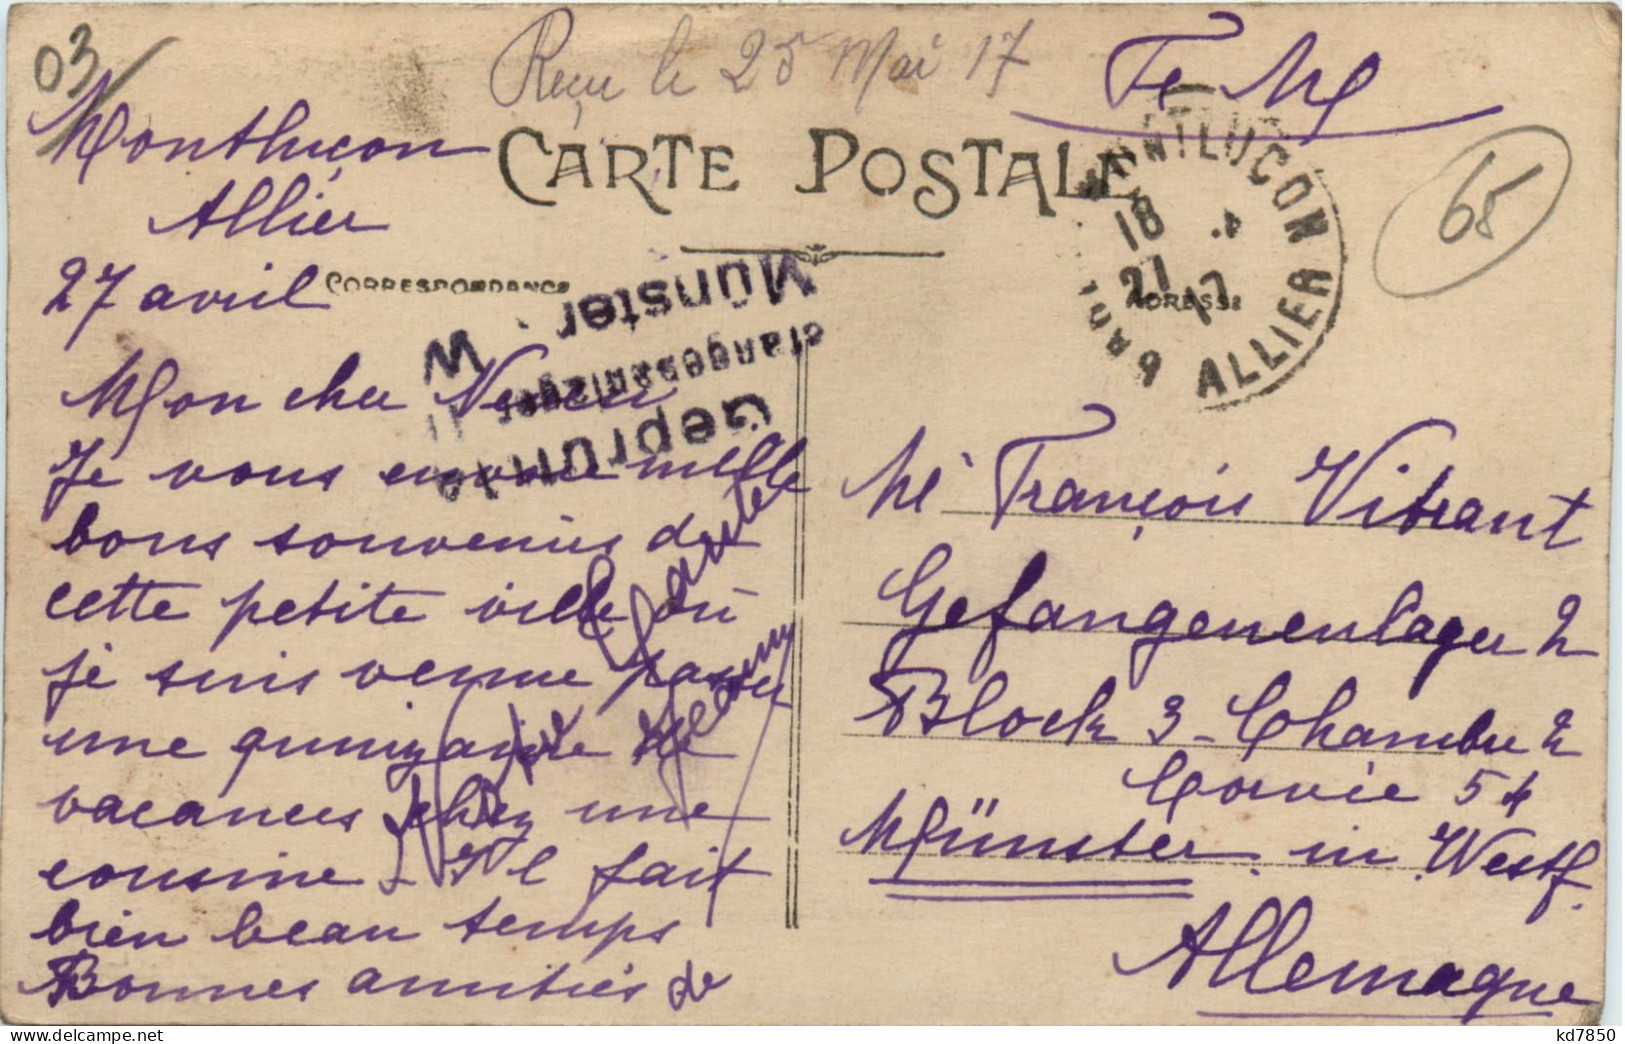 03
Reçu le 25 Mai 17
65
CARTE POSTALE
CORRESPONDANCE
ADRESSE
MONTLUÇON
18
27 4 17
ALLIER
Geprüft
Münster W.
Montluçon
Allier
27 avril
Mon cher
Je vous envoie mille
bons souvenirs de
cette petite ville où
je suis venue passer
une quinzaine de
vacances chez une
cousine - Il fait
bien beau temps
Bonnes amitiés de
Mr François Vitrant
Gefangenenlager 2
Block 3 - Chambre 2
54
Münster in Westf.
Allemagne
kd7850